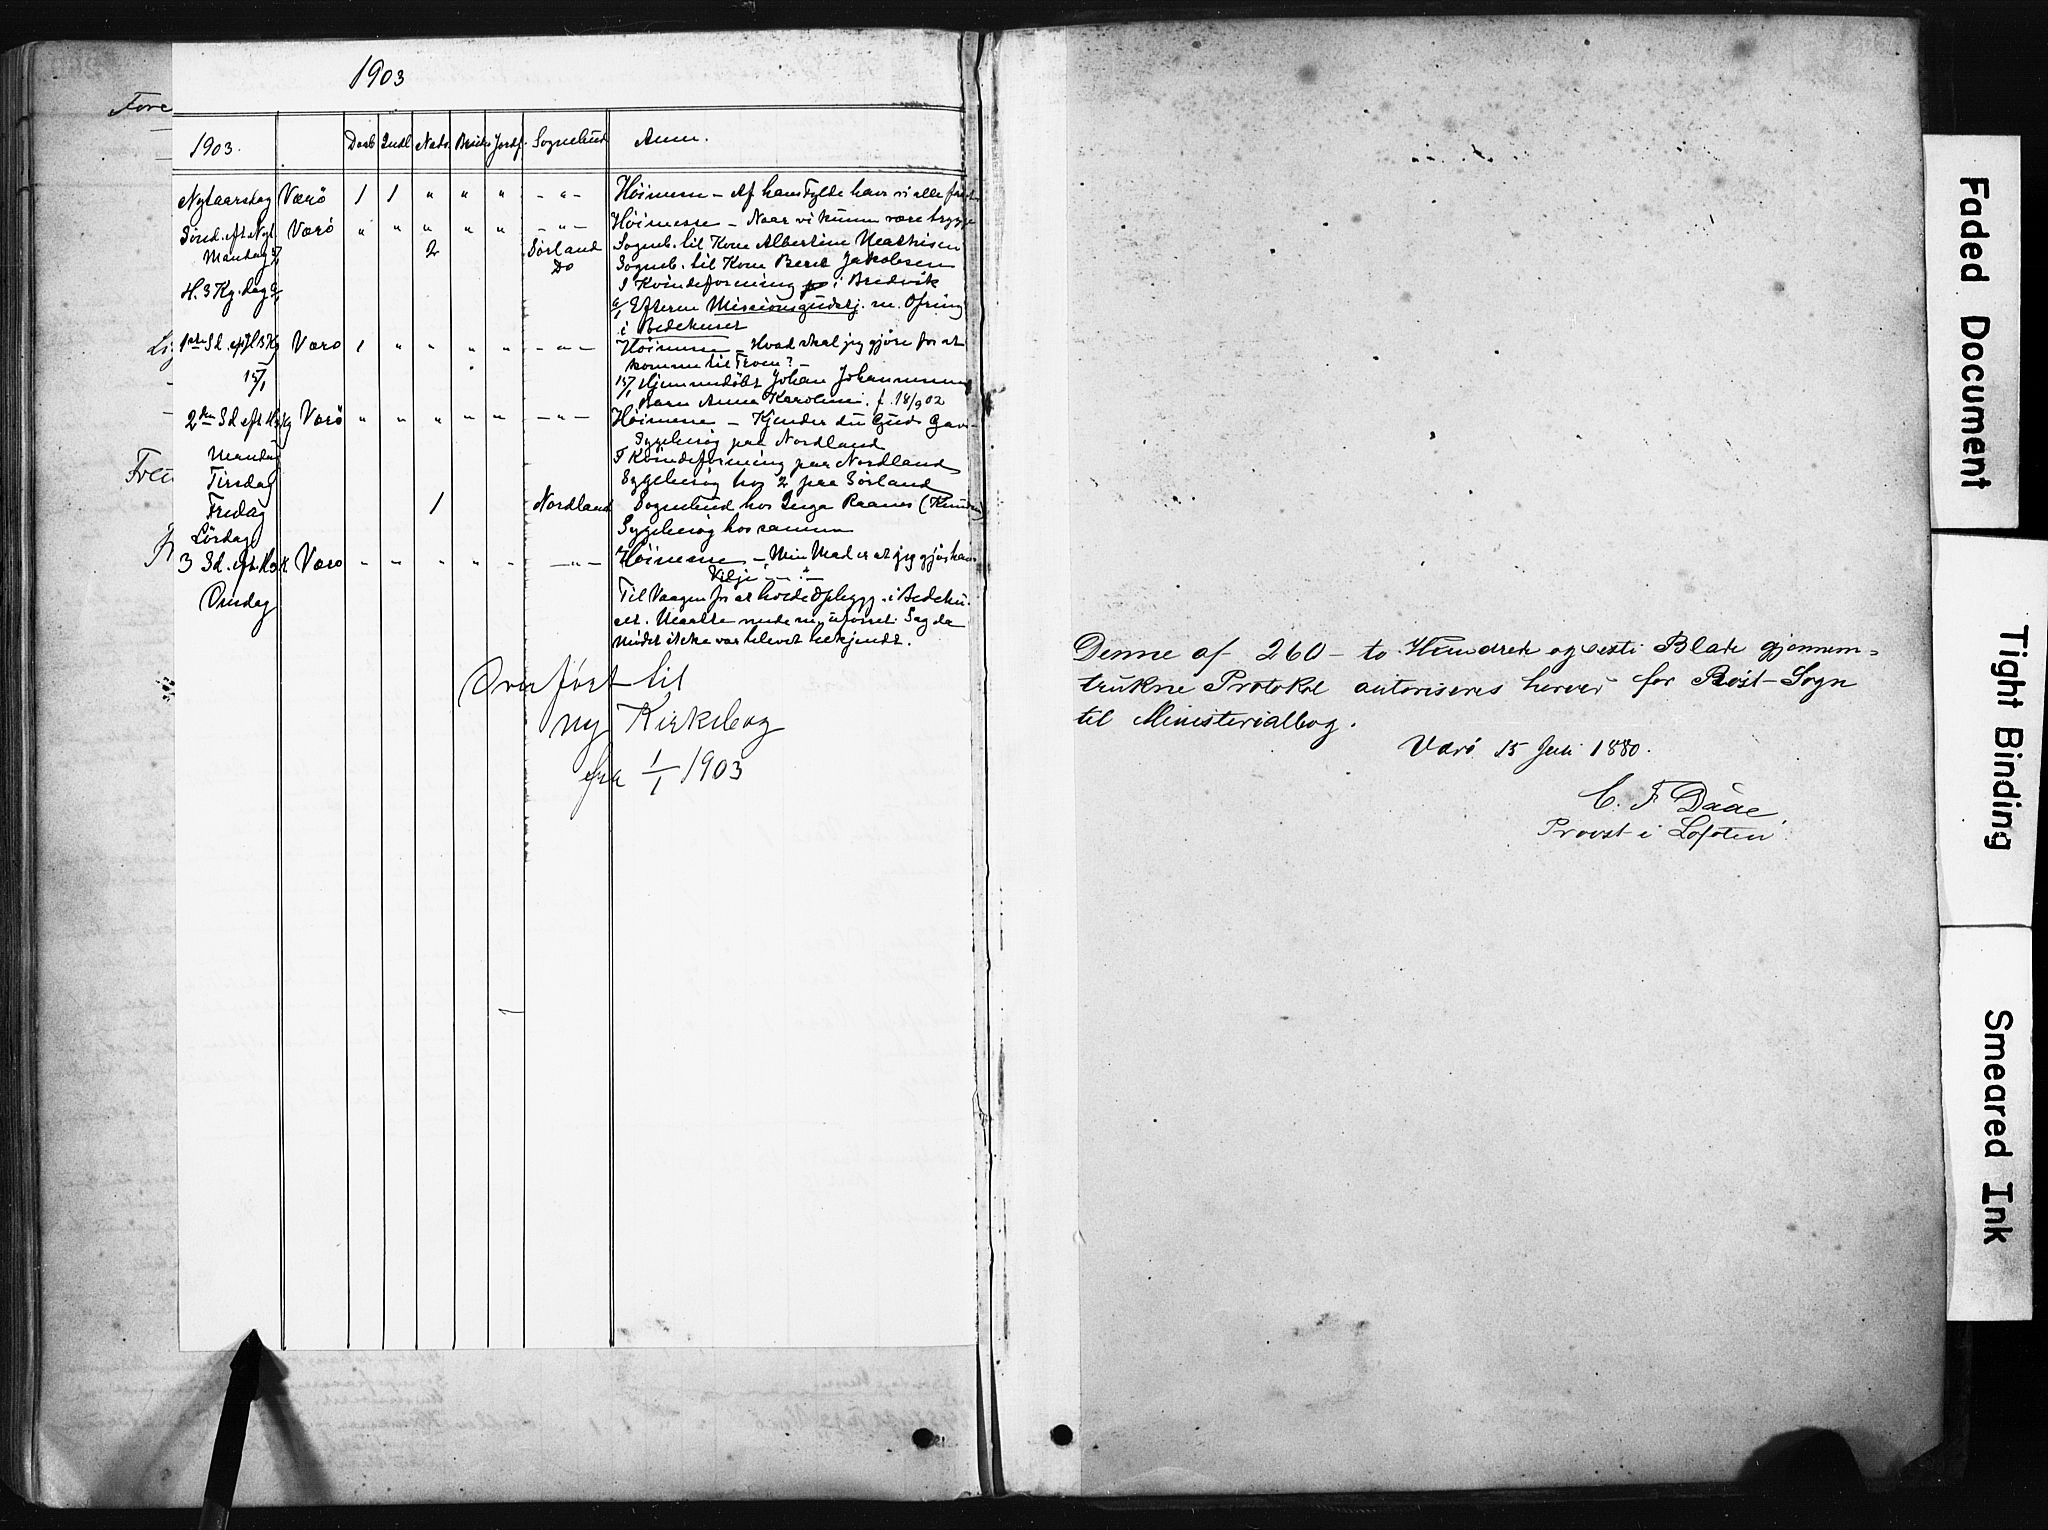 1903
Fore
1903. Daab Indl Natv. Jordf. Sognebud Anm.
Nytaarsdag Værö 1 1 " " " - " - Höimesse - Af hans Fylde have vi alle
Sönd. eft. Nyt. Værö " " " " " - " - Höimesse - Naar vi kunne være trygge
Mandag 5/1 2 Sörland Sogneb. til Kone Albertine Mathisen
Do Sogneb. til Kone Beret Jakobsen
I Kvindeforening i Bredvik
H. 3 Kg. dag 6/1 6/1 Efterm Missionsgudstj. m. Ofring
i Bedehuset
1ste Sd. eft H3Kg Værö 1 " " " " - " - Höimesse - Hvad skal jeg gjöre for at
komme til Troen? -
15/1 15/1 Hjemmedöbt Johan Johannessens
Barn Anna Karoline. f. 18/9 02
2den Sd eft H3Kg Værö " " " " " - " - Höimesse - Kjender du Guds Gave -
Sygebesög paa Nordland
Mandag I Kvindeforening paa Nordland
Tirsdag Sygebesög hos 2 paa Sörland
Fredag 1 Nordland Sognebud hos Inga Raanes
Lördag Sygebesög hos samme
3 Sd. eft. H3K. Værö " " " " " - " - Höimesse - Min Mad er at jeg gjör hans
Vilje - " -
Onsdag Til Vaagen for at holde Opbygg. i Bedehu-
set. Maatte vende m. uforret. Sag da
Mödet ikke var blevet bekjendt.
Overfört til
ny Kirkebog
fra 1/1 1903
Denne af 260 - to Hundrede og sexti Blade gjennem=
trukne Protokol autoriseres herved for Röst-Sogn
til Ministerialbog.
Værö 15 Juli 1880.
C. F. Daae
Provst i Lofoten
Faded Document
Tight Binding
Smeared Ink